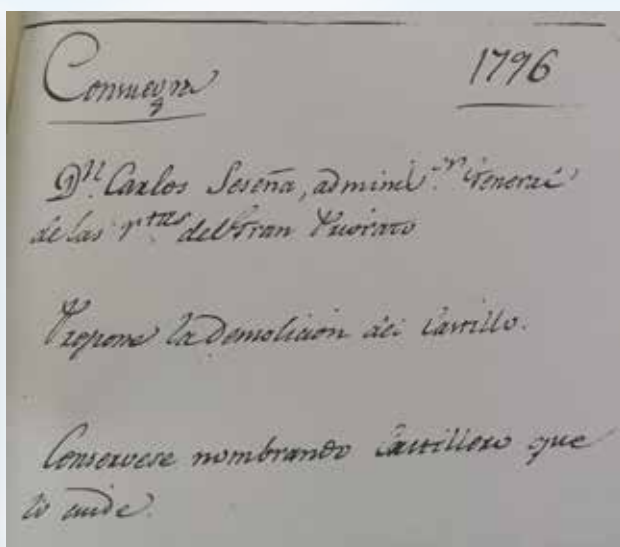 Consuegra 1796
Dn. Carlos Seseña, adminis.or General
de las rtas del Gran Priorato
Propone la Demolicion del Castillo.
Conservese nombrando Castillero que
lo cuide.